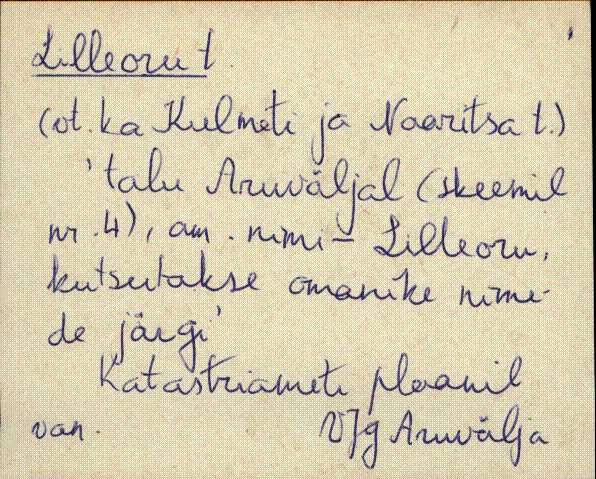 Lilleoru t.
(vt. ka Kulmeti ja Naaritsa t.)
'talu Aruväljal (skeemil
nr. 4), am. nimi - Lilleoru,
kutsutakse omanike nime-
de järgi'
Katastriameti plaanil
van. VJg Aruvälja